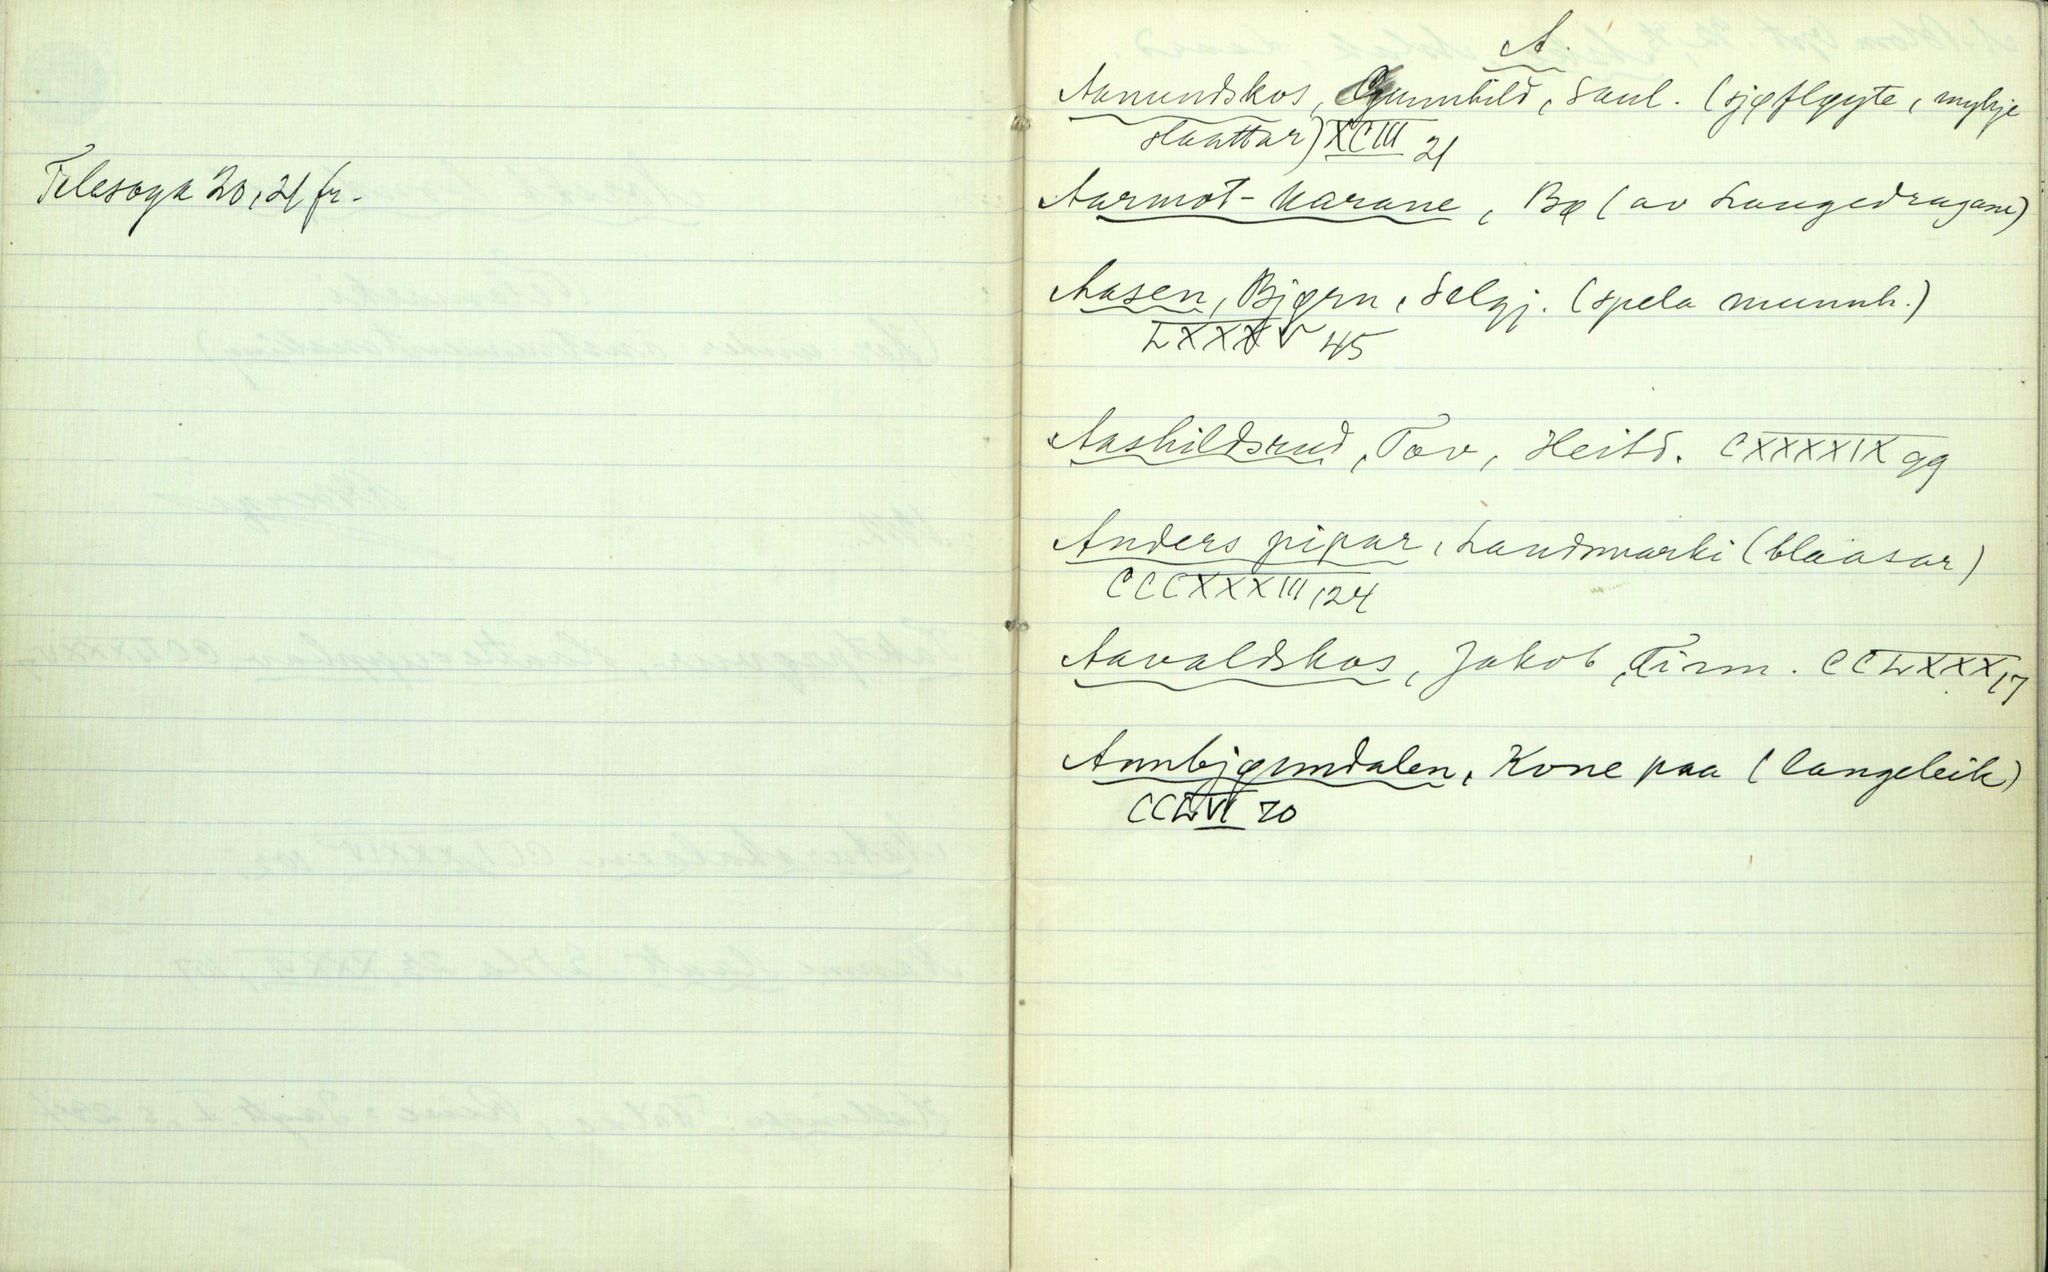 Telesoga 20, 21 fr.
A.
Aamundskos, Gunnhild, Saul. (sjøfløyte, mykje
slaattar) XCIII 21
Aarmot-karane, Bø (av Langedragane)
Aasen, Bjørn, Selgj. (spela munnh.)
LXXXV 45
Aashildsrud, Tov, Heitd. CXXXXIX 99
Anders pipar, Landsmarki (blaasar)
CCCXXXIII, 24
Aavaldskos, Jakob, Tirm. CCLXXX, 17
Annbjørndalen, Kone paa (langeleik)
CCLVI 70